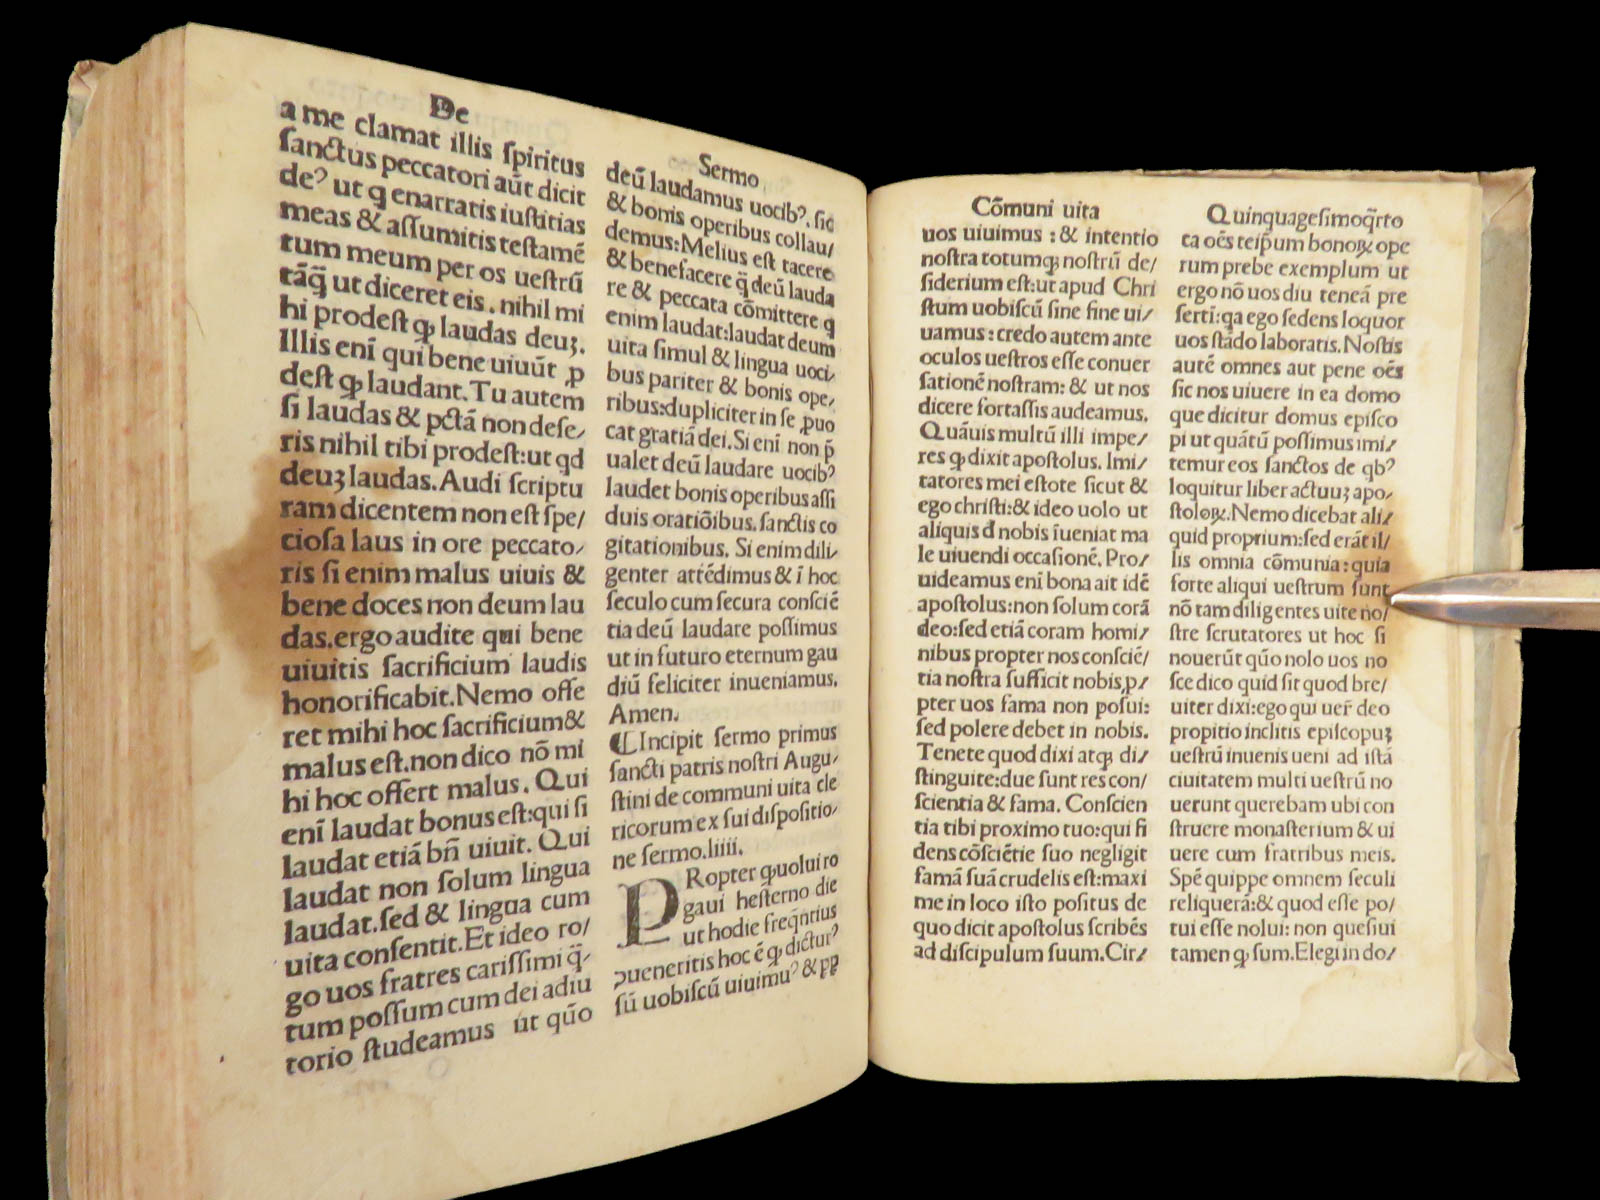 De
a me clamat illis ſpiritus
ſanctus peccatori aūt dicit
deꝰ ut q enarratis iuſtitias
meas & aſſumitis teſtamē
tum meum per os ueſtrū
tāq̄ ut diceret eis . nihil mi
hi prodeſt ꝙ laudas deuꝫ.
Illis enī qui bene uiuūt ꝓ
deſt ꝙ laudant. Tu autem
ſi laudas & pctā non deſe⸝
ris nihil tibi prodeſt:ut qd
deuꝫ laudas. Audi ſcriptu
ram dicentem non eſt ſpe⸝
cioſa laus in ore peccato⸝
ris ſi enim malus uiuis &
bene doces non deum lau
das.ergo audite qui bene
uiuitis ſacrificium laudis
honorificabit.Nemo offe
ret mihi hoc ſacrificium &
malus eſt.non dico nō mi
hi hoc offert malus. Qui
enī laudat bonus eſt:qui ſi
laudat etiā bn̄ uiuit. Qui
laudat non ſolum lingua
laudat.ſed & lingua cum
uita conſentit.Et ideo ro⸝
go uos fratres cariſſimi q̄⸝
tum poſſum cum dei adiu
torio ſtudeamus ut quō
Sermo
deū laudamus uocibꝰ. ſic
& bonis operibus collau⸝
demus:Melius eſt tacere
& benefacere q̄ deū lauda
re & peccata cōmittere q
enim laudat:laudat deum
uita ſimul & lingua uoci⸝
bus pariter & bonis ope⸝
ribus:dupliciter in ſe ꝓuo
cat gratiā dei. Si enī non p̄
ualet deū laudare uocibꝰ
laudet bonis operibus aſſi
duis oratiōibus. ſanctis co
gitationibus. Si enim dili⸝
genter attēdimus & ī hoc
ſeculo cum ſecura conſciē
tia deū laudare poſſimus
ut in futuro eternum gau
diū feliciter inueniamus.
Amen.
⁋Incipit ſermo primus
ſancti patris noſtri Augu⸝
ſtini de communi uita cle
ricorum ex ſui diſpoſitio⸝
ne ſermo.liiii.
PRopter ꝙ uolui ro
gaui heſterno die
ut hodie freq̄ntius
ꝯueneritis hoc ē ꝙ dicturꝰ
ſū uobiſcū uiuimꝰ & pp
Cōmuni uita
uos uiuimus : & intentio
noſtra totumqꝫ noſtrū de⸝
ſiderium eſt:ut apud Chri
ſtum uobiſcū ſine fine ui⸝
uamus : credo autem ante
oculos ueſtros eſſe conuer
ſationē noſtram: & ut nos
dicere fortaſſis audeamus.
Quāuis multū illi impe⸝
res ꝙ dixit apoſtolus. Imi⸝
tatores mei eſtote ſicut &
ego chriſti:& ideo uolo ut
aliquis đ nobis īueniat ma
le uiuendi occaſionē. Pro⸝
uideamus enī bona ait idē
apoſtolus:non ſolum corā
deo:ſed etiā coram homi⸝
nibus propter nos conſciē⸝
tia noſtra ſufficit nobis,ꝓ⸝
pter uos fama non poſui:
ſed polere debet in nobis.
Tenete quod dixi atqꝫ di⸝
ſtinguite:due ſunt res con⸝
ſcientia & fama. Conſcien
tia tibi proximo tuo:qui fi
dens cōſciētie ſuo negligit
famā ſuā crudelis eſt:maxi
me in loco iſto poſitus de
quo dicit apoſtolus ſcribēs
ad diſcipulum ſuum. Cir⸝
Quinquageſimoq̄rto
ca oēs teip̄ſum bonoꝝ ope
rum prebe exemplum ut
ergo nō uos diu teneā pre
ſerti:qa ego ſedens loquor
uos ſtādo laboratis. Noſtis
autē omnes aut pene oēs
ſic nos uiuere in ea domo
que dicitur domus epiſco
pi ut quātū poſſimus imi⸝
temur eos ſanctos de qbꝰ
loquitur liber actuuꝫ apo⸝
ſtoloꝝ. Nemo dicebat ali⸝
quid proprium:ſed erāt il⸝
lis omnia cōmunia:quia
forte aliqui ueſtrum ſunt
nō tam diligentes uite no⸝
ſtre ſcrutatores ut hoc ſi
nouerūt quō nolo uos no
ſce dico quid ſit quod bre⸝
uiter dixi:ego qui uer̄ deo
propitio inclitis epiſcopuꝫ
ueſtrū inuenis ueni ad iſtā
ciuitatem multi ueſtrū no
uerunt querebam ubi con
ſtruere monaſterium & ui
uere cum fratribus meis.
Spē quippe omnem ſeculi
reliquerā:& quod eſſe po⸝
tui eſſe nolui: non queſiui
tamen ꝙ ſum. Elegi in do⸝